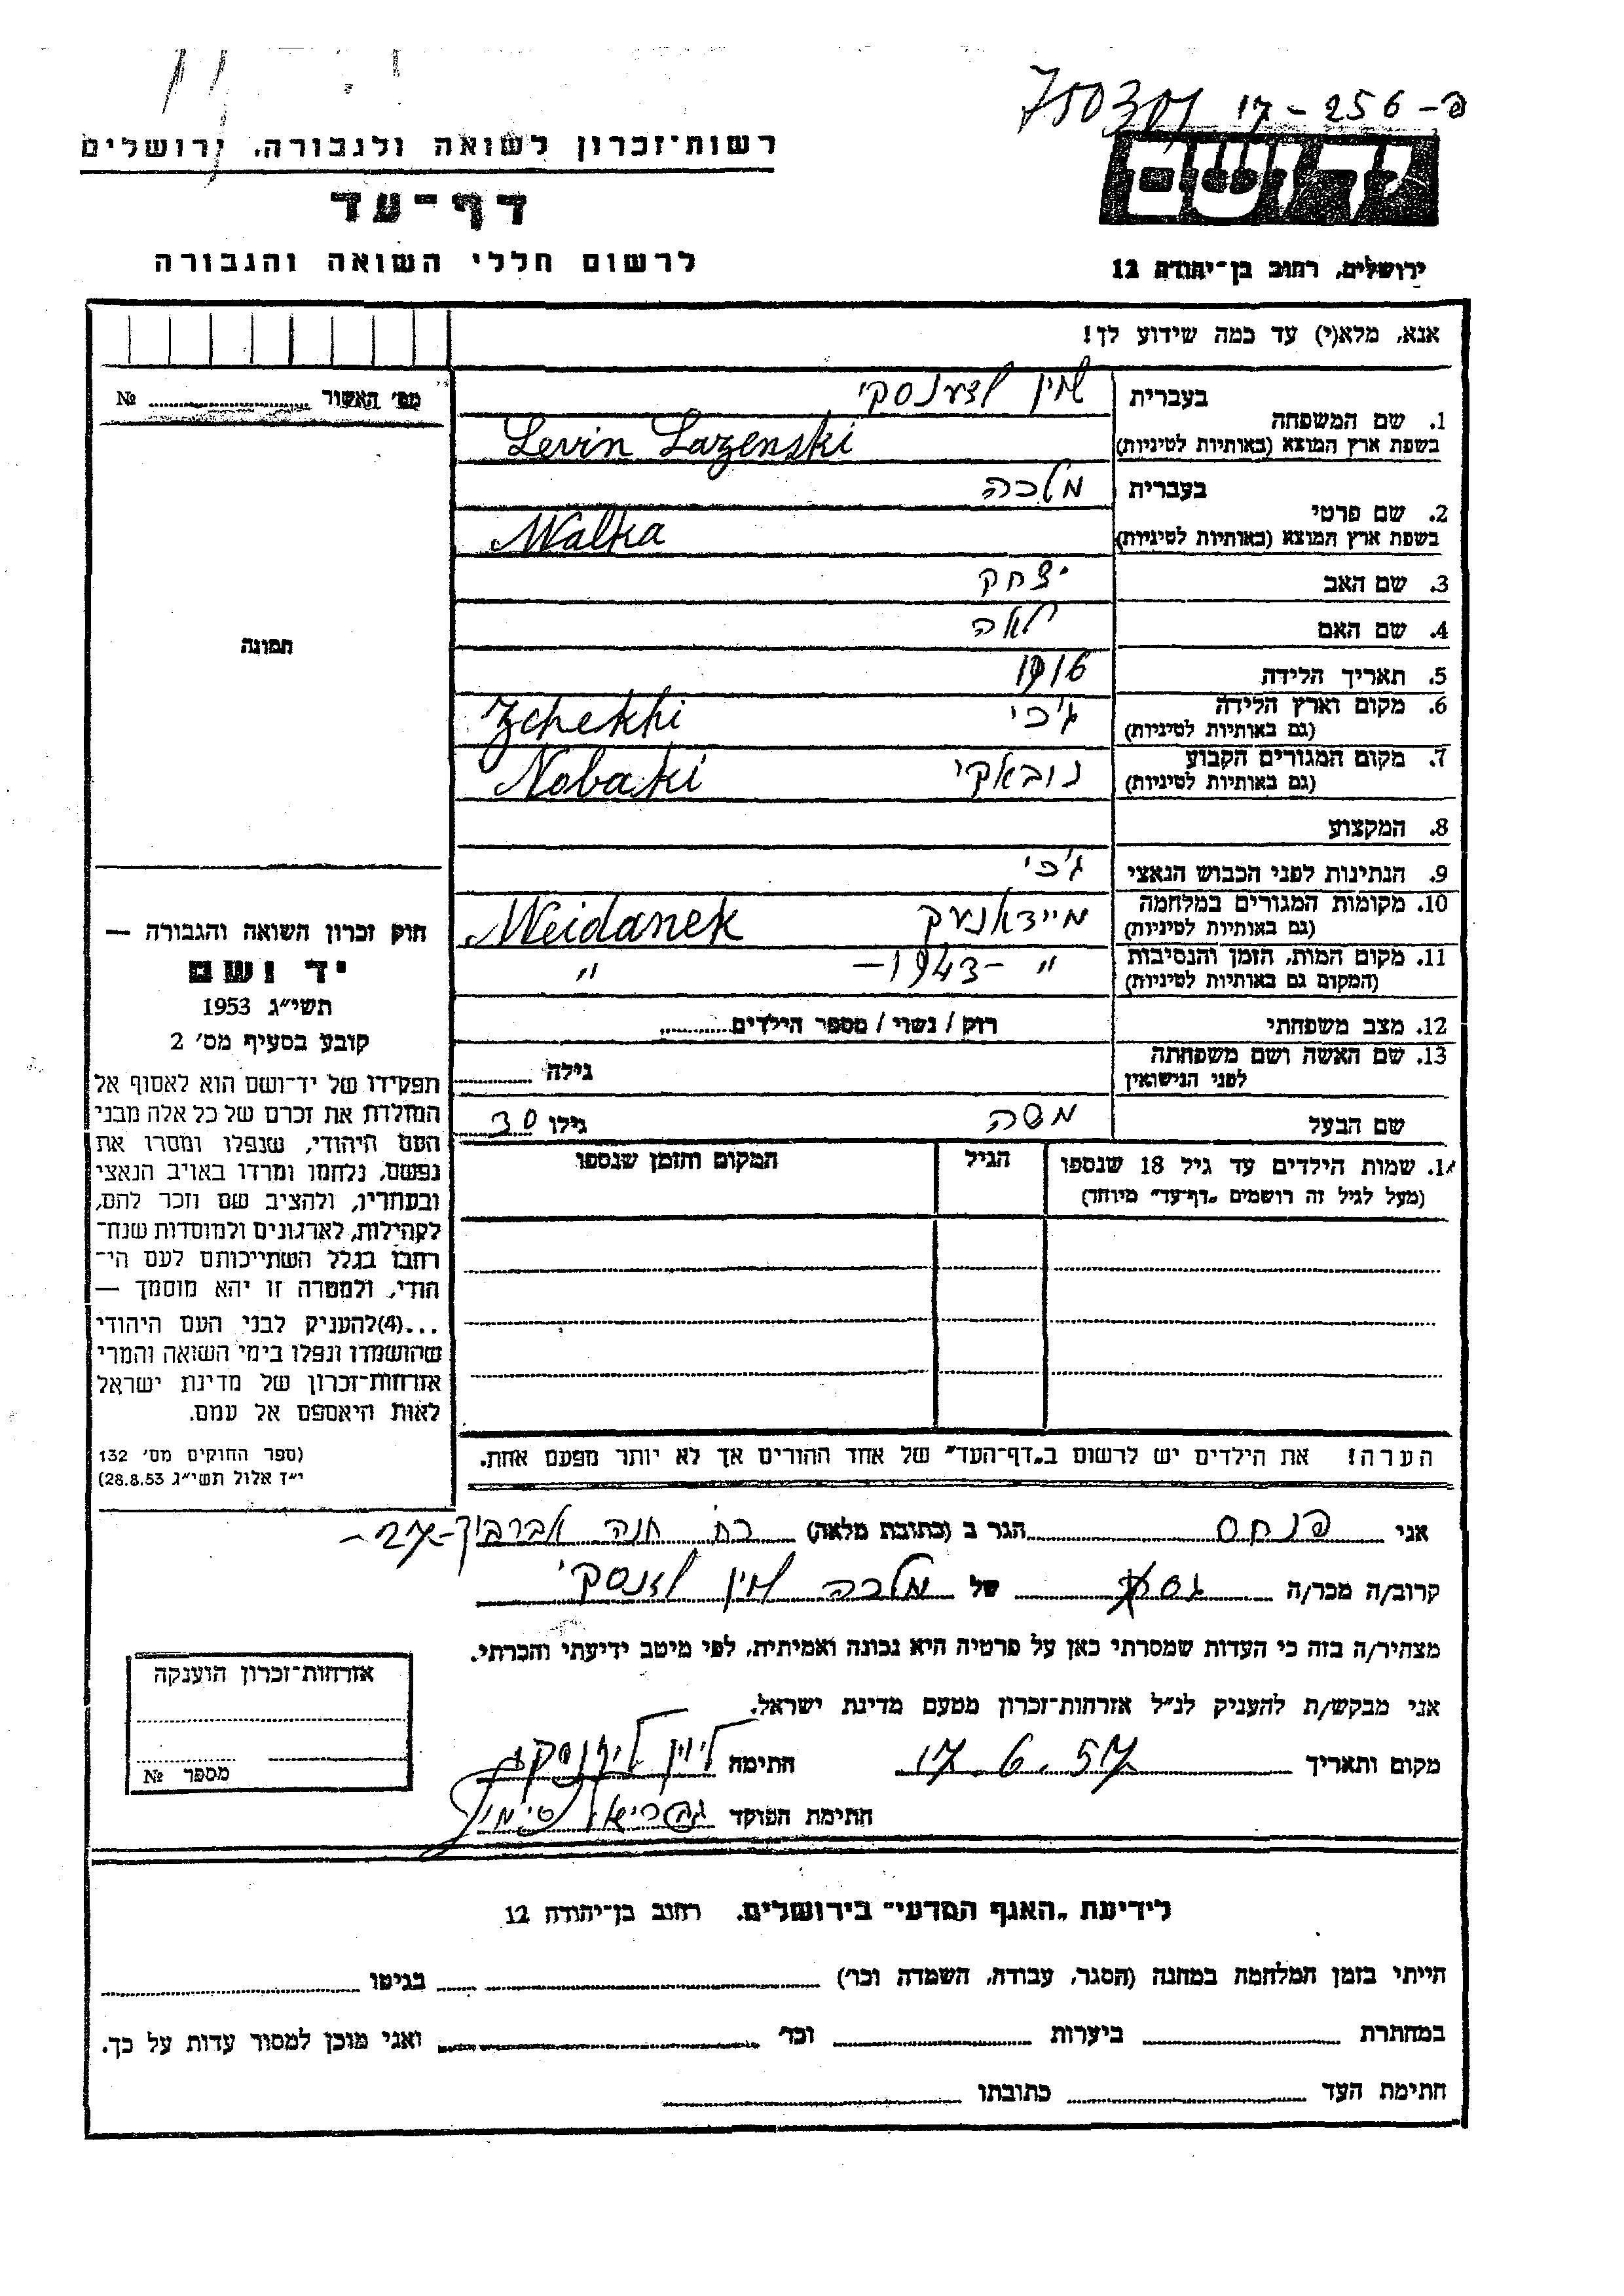 17-256-פ
רשות־זכרון לשואה ולגבורה, ירושלים
דף־עד
לרשום חללי השואה והגבורה
ירושלים, רחוב בן־יהודה 12
אנא, מלא(י) עד כמה שידוע לך!
מס׳ האשור № 
1. שם המשפחה בעברית לוין לזענסקי
בשפת ארץ המוצא (באותיות לטיניות) Levin Lazenski
2. שם פרטי בעברית מלכה
בשפת ארץ המוצא (באותיות לטיניות) Malka
3. שם האב יצחק
4. שם האם לאה
תמונה
5. תאריך הלידה 1916
6. מקום וארץ הלידה ג׳כי Zchekhi
(גם באותיות לטיניות)
7. מקום המגורים הקבוע נובאקי Nobaki
(גם באותיות לטיניות)
8. המקצוע
9. הנתינות לפני הכבוש הנאצי ג׳כי
10. מקומות המגורים במלחמה מיידאנעק Meidanek
(גם באותיות לטיניות)
11. מקום המות, הזמן והנסיבות " -1943- "
(המקום גם באותיות לטיניות)
12. מצב משפחתי רוק / נשוי / מספר הילדים
13. שם האשה ושם משפחתה לפני הנישואין גילה
שם הבעל משה גילו 30
14. שמות הילדים עד גיל 18 שנספו הגיל המקום והזמן שנספו
(מעל לגיל זה רושמים „דף־עד״ מיוחד)
הערה! את הילדים יש לרשום ב„דף־העד״ של אחד ההורים אך לא יותר מפעם אחת.
חוק זכרון השואה והגבורה —
יד ושם
תשי״ג 1953
קובע בסעיף מס׳ 2
תפקידו של יד־ושם הוא לאסוף אל
המולדת את זכרם של כל אלה מבני
העם היהודי, שנפלו ומסרו את
נפשם, נלחמו ומרדו באויב הנאצי
ובעוזריו, ולהציב שם וזכר להם,
לקהילות, לארגונים ולמוסדות שנח־
רבו בגלל השתייכותם לעם הי־
הודי, ולמטרה זו יהא מוסמך —
...(4) להעניק לבני העם היהודי
שהושמדו ונפלו בימי השואה והמרי
אזרחות־זכרון של מדינת ישראל
לאות היאספם אל עמם.
(ספר החוקים מס׳ 132
י״ז אלול תשי״ג 28.8.53)
אני פנחס הגר ב (כתובת מלאה) חנה
קרוב/ה מכר/ה גסה של מלכה לוין לזנסקי
מצהיר/ה בזה כי העדות שמסרתי כאן על פרטיה היא נכונה ואמיתית, לפי מיטב ידיעתי והכרתי.
אני מבקש/ת להעניק לנ״ל אזרחות־זכרון מטעם מדינת ישראל.
מקום ותאריך 17.6.57 חתימה
חתימת הפוקד
אזרחות־זכרון הוענקה
מספר №
לידיעת „האגף המדעי״ בירושלים, רחוב בן־יהודה 12
הייתי בזמן המלחמה במחנה (הסגר, עבודה, השמדה וכו׳) בגיטו
במחתרת ביערות וכו׳ ואני מוכן למסור עדות על כך.
חתימת העד כתובתו